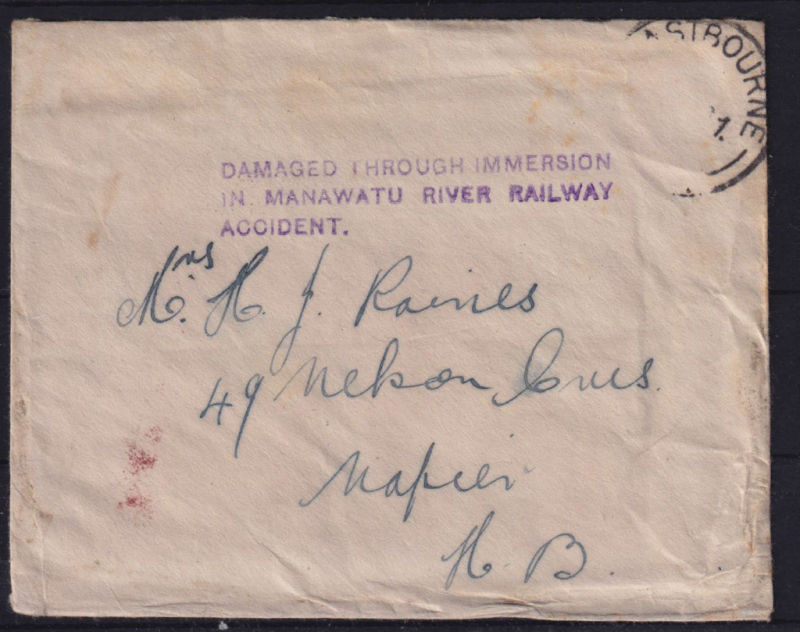 ASTBOURNE
1.
DAMAGED THROUGH IMMERSION
IN MANAWATU RIVER RAILWAY
ACCIDENT.
Mrs H. J. Raines
49 Nelson Cres.
Napier
H. B.